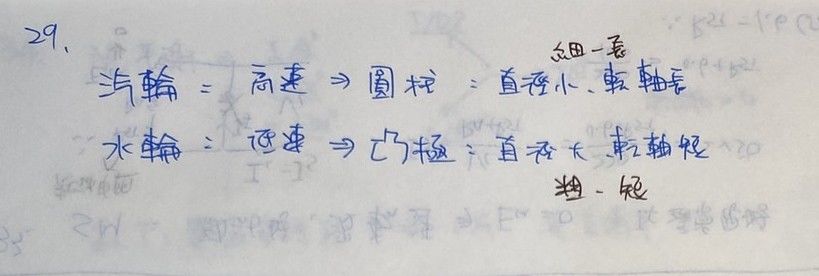 29.
細－長
汽輪：高速⇒圓柱：直徑小、転軸長
水輪：低速⇒凸極：直徑大、転軸短
粗－短